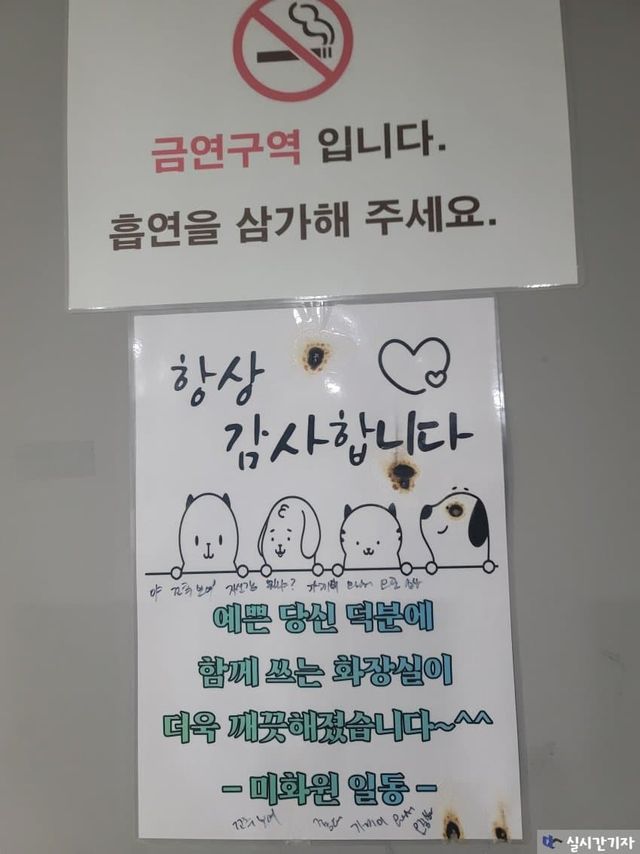 금연구역 입니다.
흡연을 삼가해 주세요.
항상
감사합니다
예쁜 당신 덕분에
함께 쓰는 화장실이
더욱 깨끗해졌습니다~^^
- 미화원 일동 -
실시간기자